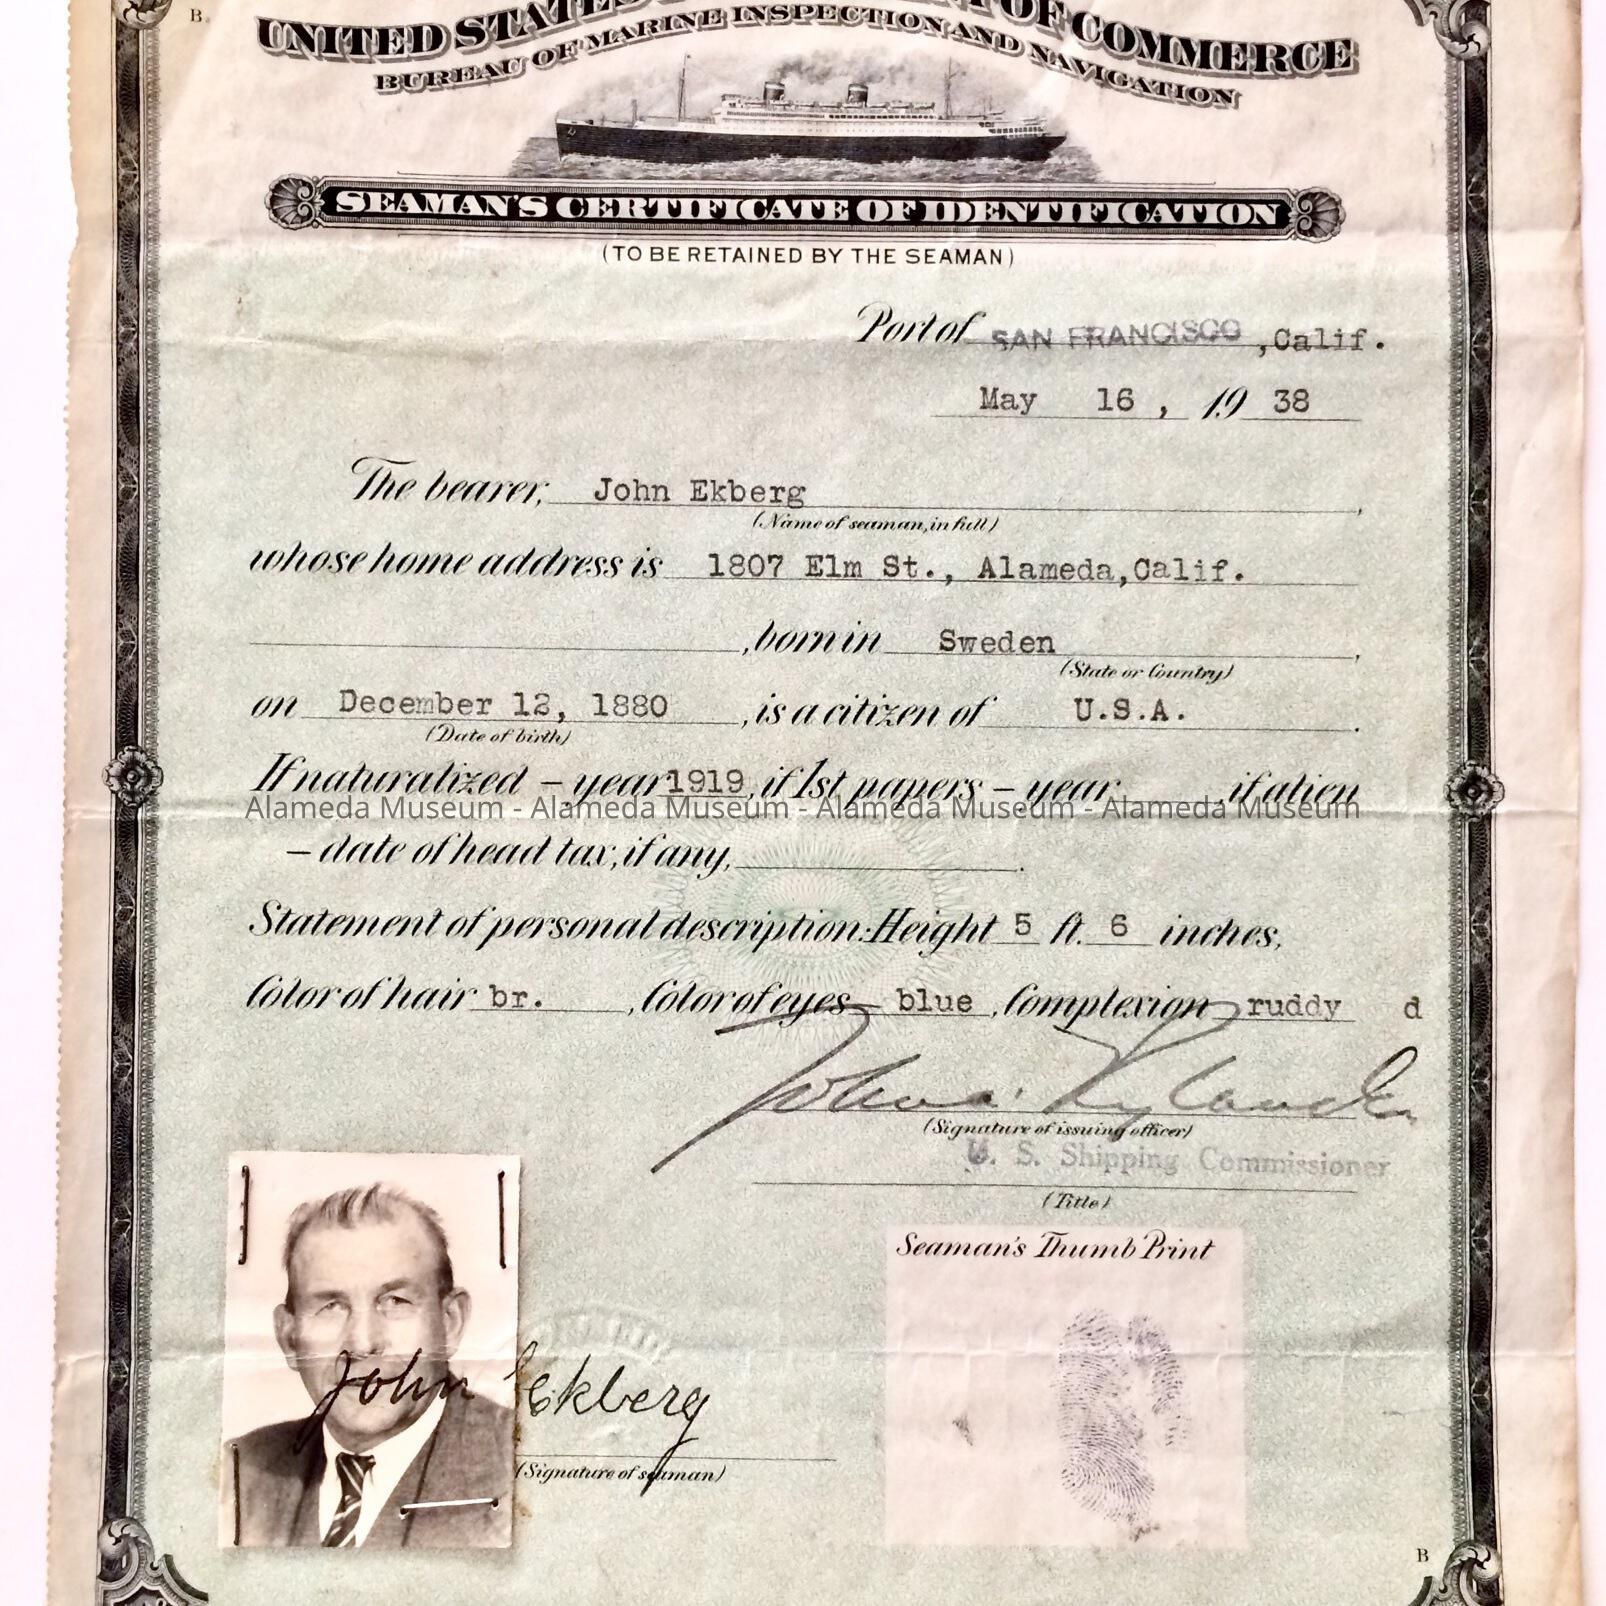 B.
UNITED STATES OF COMMERCE
BUREAU OF MARINE INSPECTION AND NAVIGATION
SEAMAN'S CERTIFICATE OF IDENTIFICATION
(TO BE RETAINED BY THE SEAMAN)
Port of SAN FRANCISCO , Calif.
May 16 , 19 38
The bearer, John Ekberg ,
(Name of seaman, in full)
whose home address is 1807 Elm St., Alameda,Calif.
, born in Sweden ,
(State or Country)
on December 12, 1880 , is a citizen of U.S.A. .
(Date of birth)
If naturalized – year 1919, if 1st papers – year , if alien
Alameda Museum - Alameda Museum - Alameda Museum - Alameda Museum
– date of head tax, if any, .
Statement of personal description: Height 5 ft. 6 inches,
Color of hair br. , Color of eyes blue , Complexion ruddy d
(Signature of issuing officer)
U. S. Shipping Commissioner
(Title)
Seaman's Thumb Print
John Ekberg
(Signature of seaman)
B